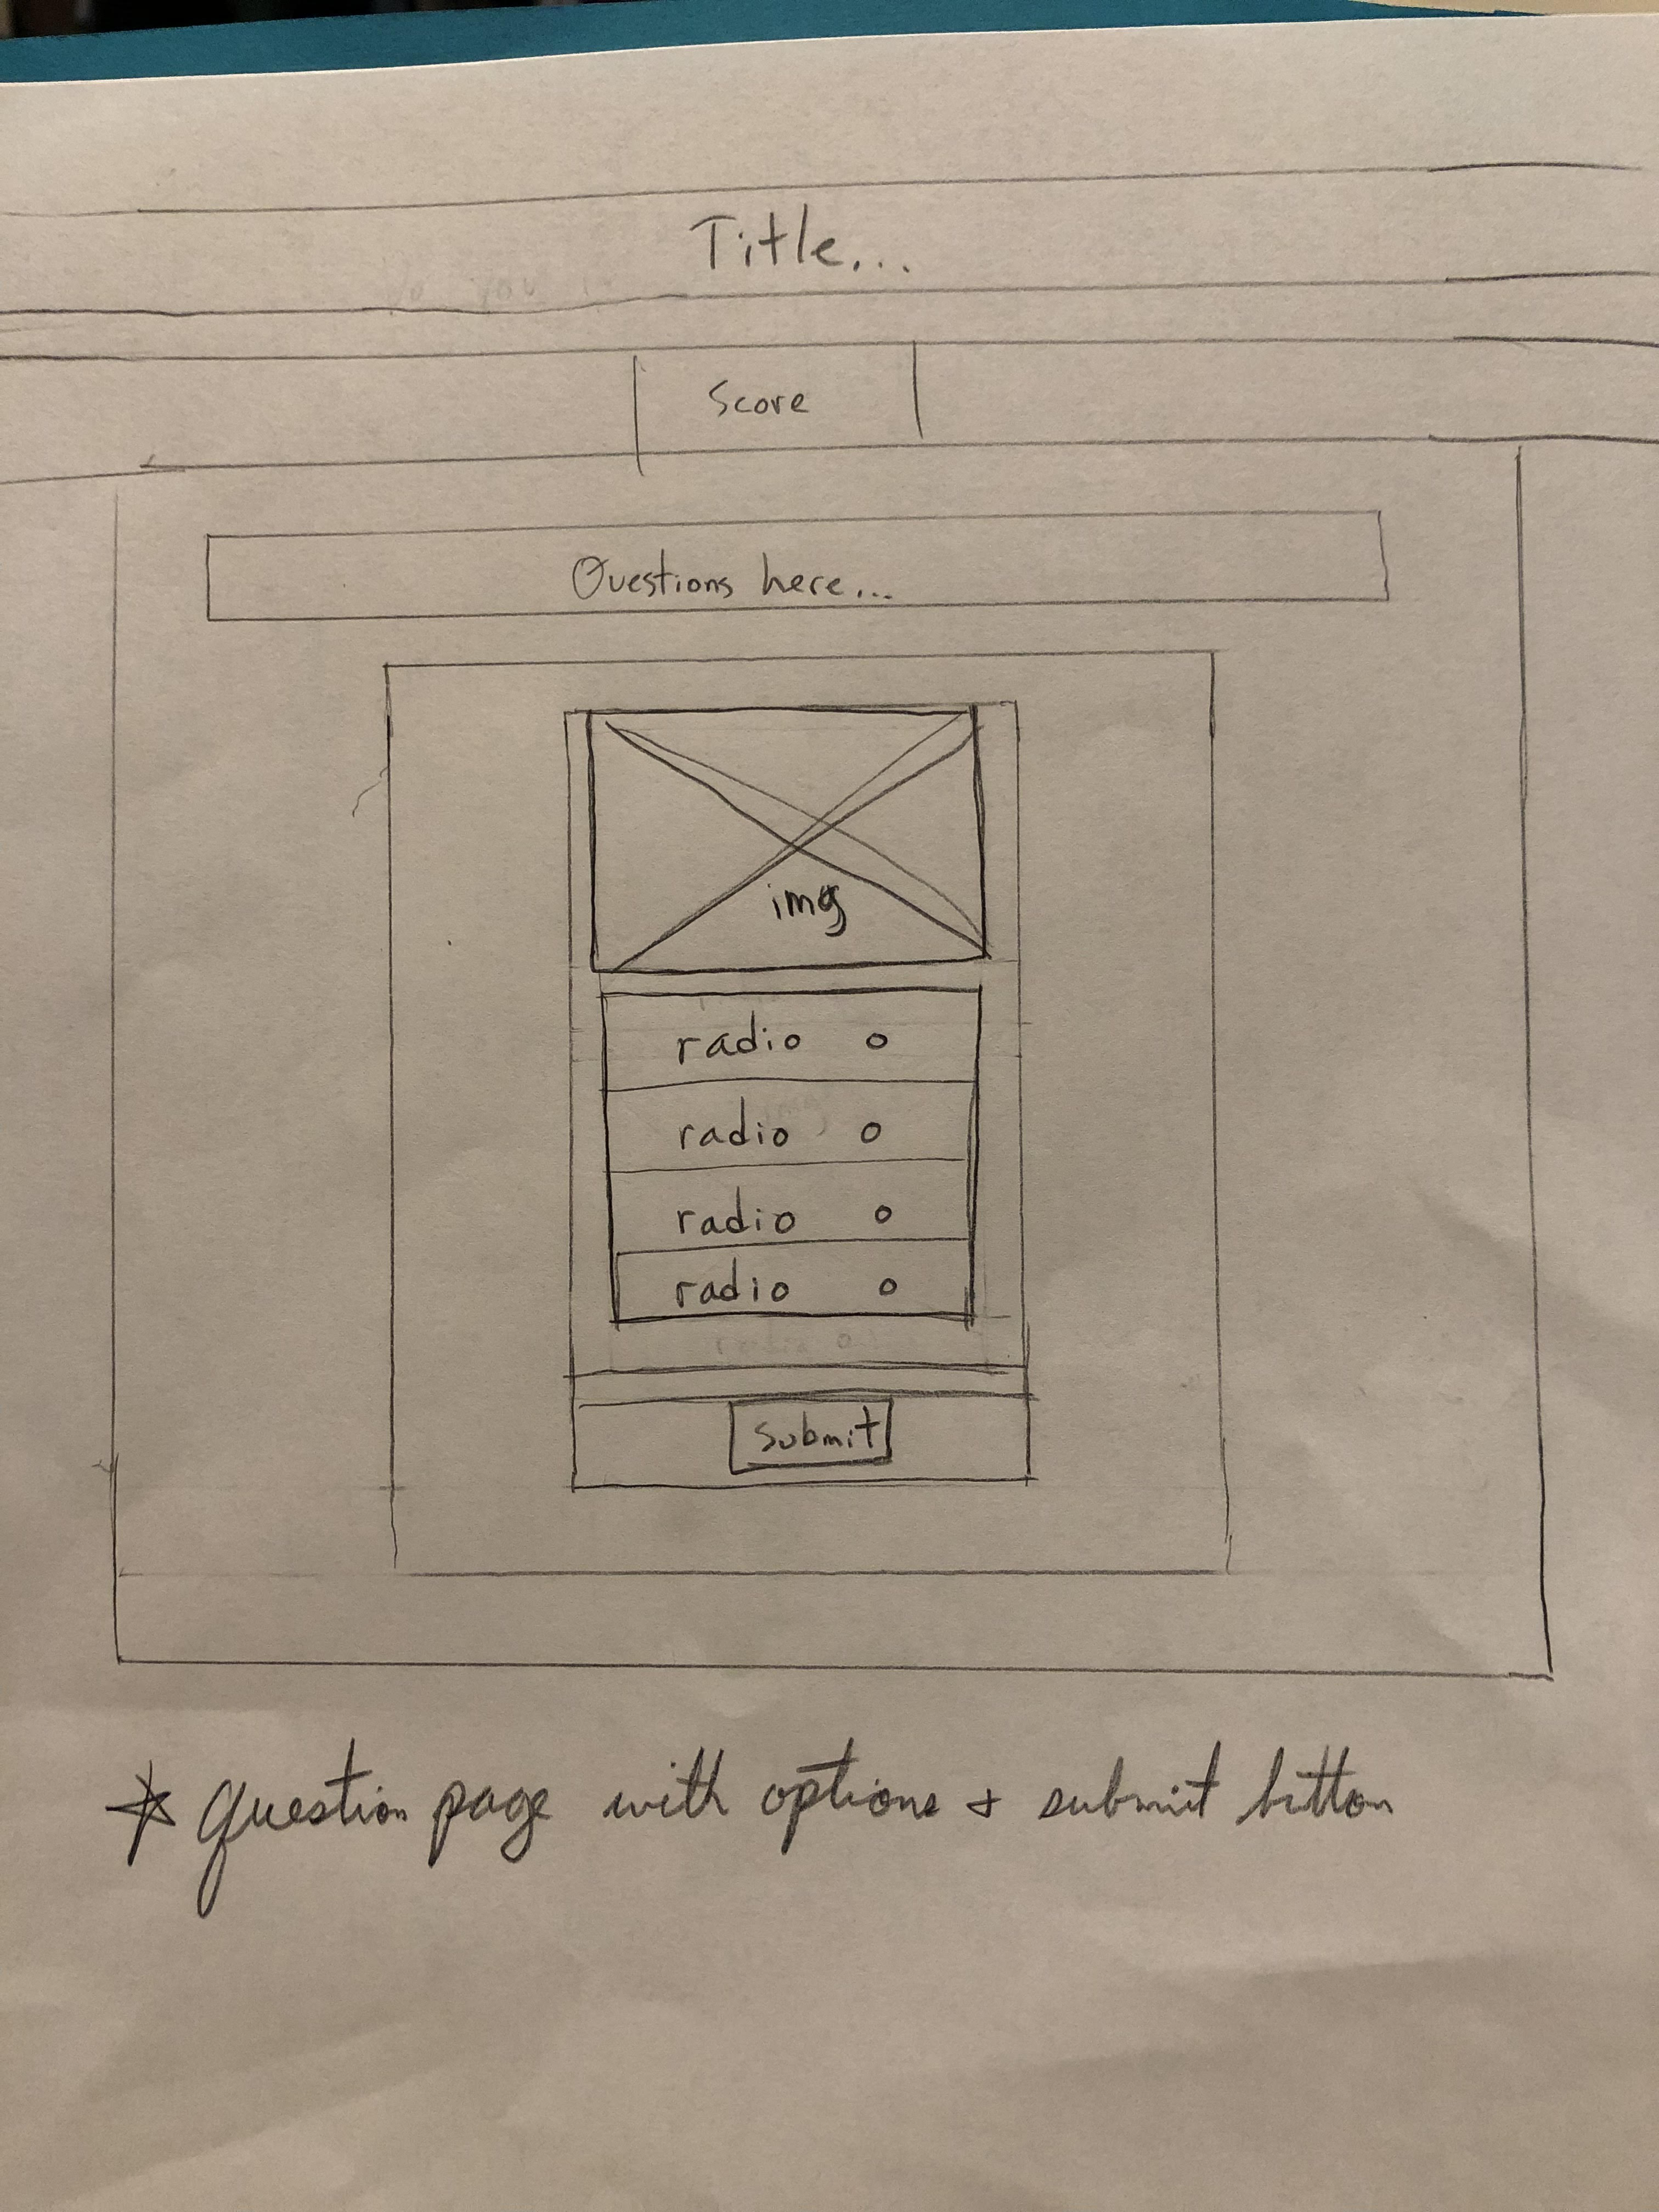 Title...
Score
Questions here...
img
radio
radio
radio
radio
submit
* question page with options + submit button